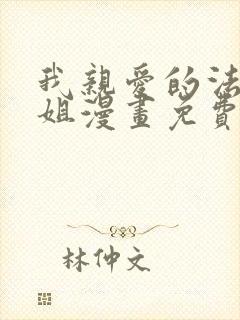 我親愛的法
姐漫畫免費
林仲文